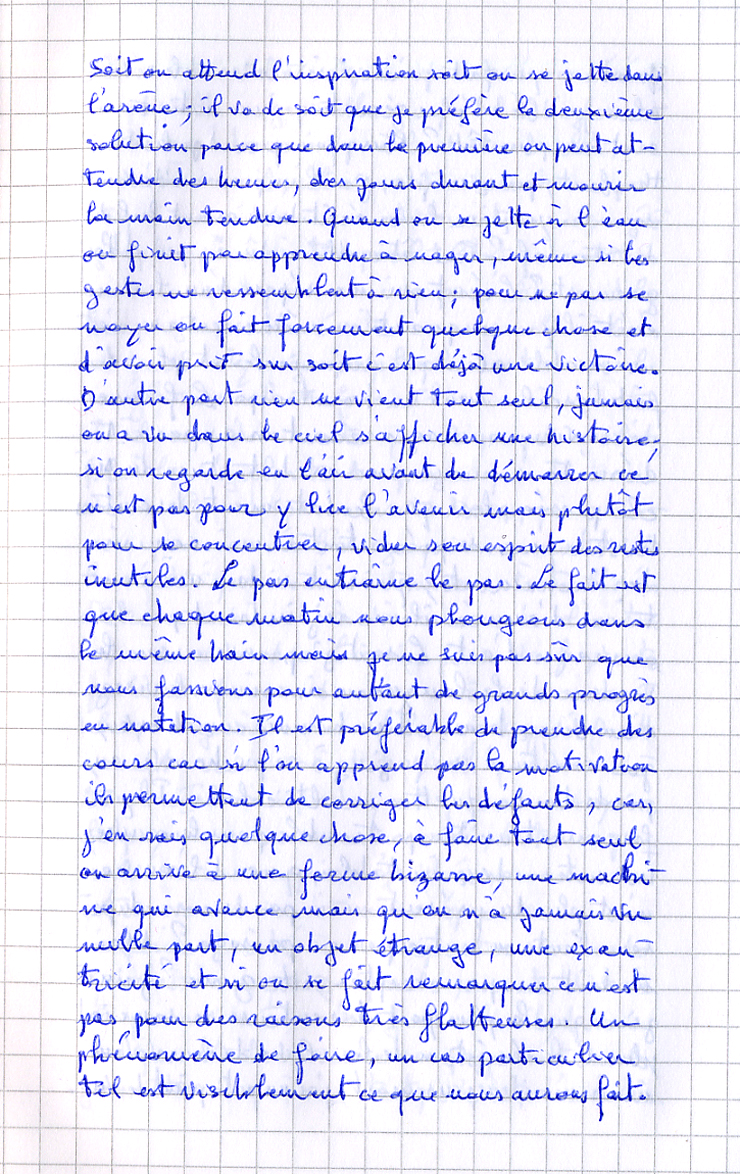 Soit on attend l'inspiration soit on se jette dans
l'arène ; il va de soit que je préfère la deuxième
solution parce que dans la première on peut at-
tendre des heures, des jours durant et mourir
la main tendue. Quand on se jette à l'eau
on finit par apprendre à nager, même si les
gestes ne ressemblent à rien ; pour ne pas se
noyer on fait forcement quelque chose et
d'avoir prit sur soit c'est déjà une victoire.
D'autre part rien ne vient tout seul, jamais
on a vu dans le ciel s'afficher une histoire,
si on regarde en l'air avant de démarrer ce
n'est pas pour y lire l'avenir mais plutôt
pour se concentrer, vider son esprit des restes
inutiles. Le pas entraîne le pas. Le fait est
que chaque matin nous plongeons dans
le même bain mais je ne suis pas sûr que
nous fassions pour autant de grands progrès
en natation. Il est préférable de prendre des
cours car si l'on apprend pas la motivation
ils permettent de corriger les défauts, car,
j'en sais quelque chose, à faire tout seul
on arrive à une forme bizarre, une machi-
ne qui avance mais qu'on n'a jamais vu
nulle part, un objet étrange, une exan-
tricité et si on se fait remarquer ce n'est
pas pour des raisons très flatteuses. Un
phénomène de foire, un cas particulier
tel est visiblement ce que nous aurons fait.